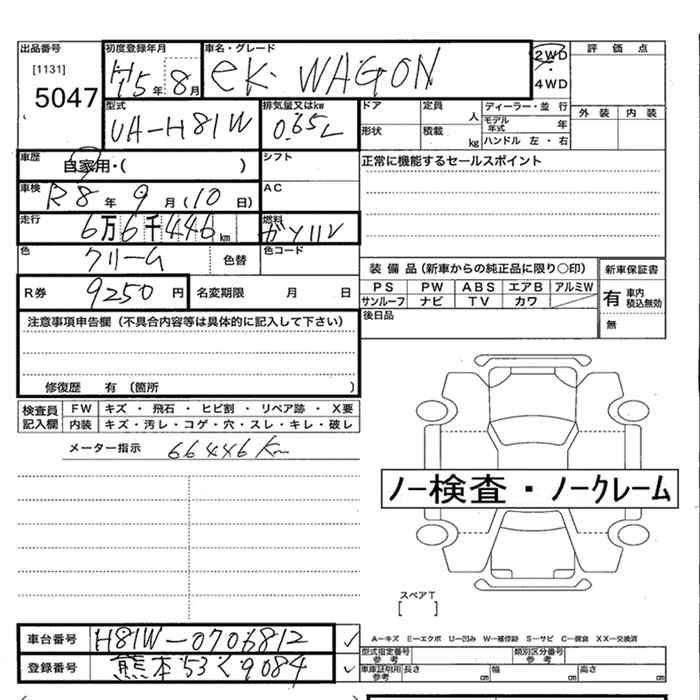 出品番号 初度登録年月 車名・グレード 2WD 評価点
[1131] H15年 8月 eK・WAGON ・
5047 4WD
型式 排気量又はkw ドア 定員 人 ディーラー・並行 外装 内装
UA-H81W 0.65L モデル年式 年
形状 積載 kg ハンドル 左・右
車歴 自家用・( ) シフト 正常に機能するセールスポイント
車検 R8年 9月(10日) AC
走行 6万6千446km 燃料 ガソリン
色 クリーム 色替 色コード
装備品(新車からの純正品に限り○印) 新車保証書
R券 9250円 名変期限 月 日 PS PW ABS エアB アルミW 有 車内積込無効
サンルーフ ナビ TV カワ
注意事項申告欄(不具合内容等は具体的に記入して下さい) 後日品 無
修復歴 有(箇所 )
検査員記入欄 FW キズ・飛石・ヒビ割・リペア跡・X要
内装 キズ・汚レ・コゲ・穴・スレ・キレ・破レ
メーター指示 66446km
ノー検査・ノークレーム
スペアT
[ ]
車台番号 H81W-0706812 ✓ A-キズ E-エクボ U-凹み W-補修跡 S-サビ C-腐食 XX-交換済
型式指定番号 参考 類別区分番号 参考
登録番号 熊本53く9084 ✓ 車庫証明用参考 長さ cm 幅 cm 高さ cm